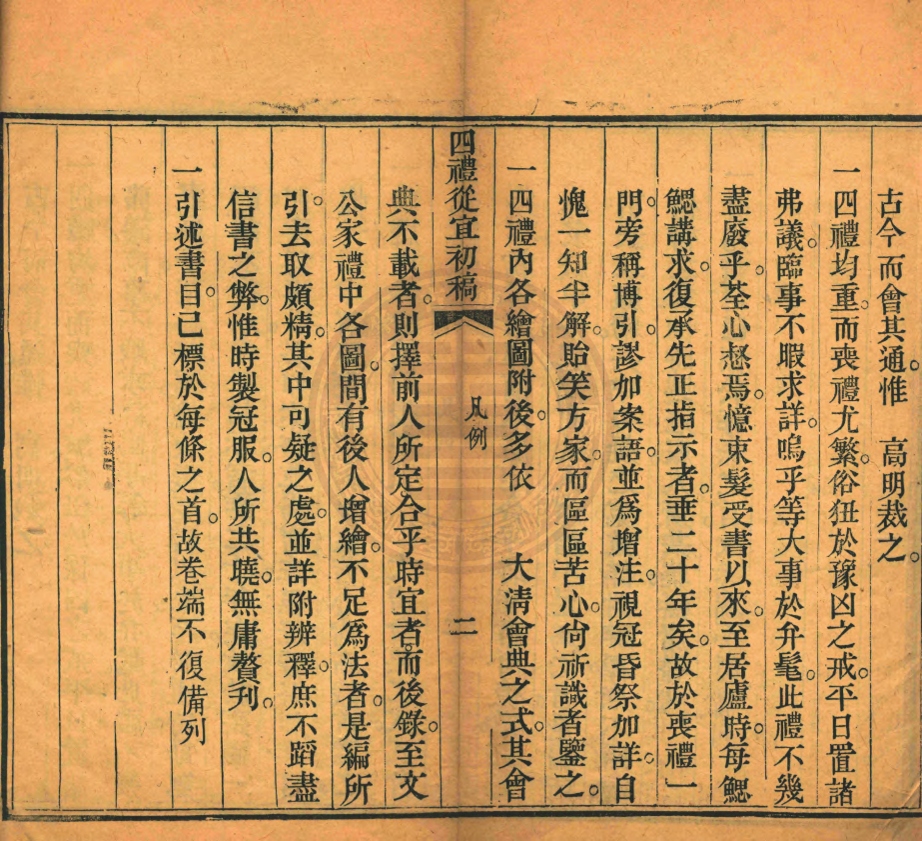 古今而會其通。惟　高明裁之。
一四禮均重。而喪禮尤繁。俗狃於豫凶之戒。平日置諸
弗議。臨事不暇求詳。嗚乎等大事於弁髦。此禮不幾
盡廢乎。荃心惄焉。憶束髮受書以來。至居廬時。每鰓
鰓講求。復承先正指示者。垂二十年矣。故於喪禮一
門。旁稱博引。謬加案語。並爲增注。視冠昏祭加詳。自
愧一知半解。貽笑方家。而區區苦心。尙祈識者鑒之。
一四禮內各繪圖附後。多依　大淸會典之式。其會
四禮從宜初稿　凡例　二
典不載者。則擇前人所定合乎時宜者。而後錄。至文
公家禮中各圖。間有後人增繪。不足爲法者。是編所
引。去取頗精。其中可疑之處。並詳附辨釋。庶不蹈盡
信書之弊。惟時製冠服。人所共曉。無庸贅刋。
一引述書目。已標於每條之首。故卷端不復備列